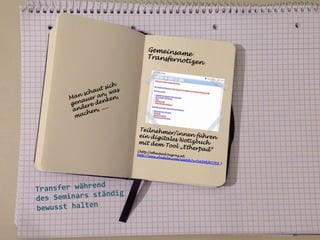 Man schaut sich
genauer an, was
andere denken,
machen, ....
Gemeinsame
Transfernotizen
Teilnehmer/innen führen
ein digitales Notizbuch
mit dem Tool „Etherpad"
Transfer während
des Seminars ständig
bewusst halten